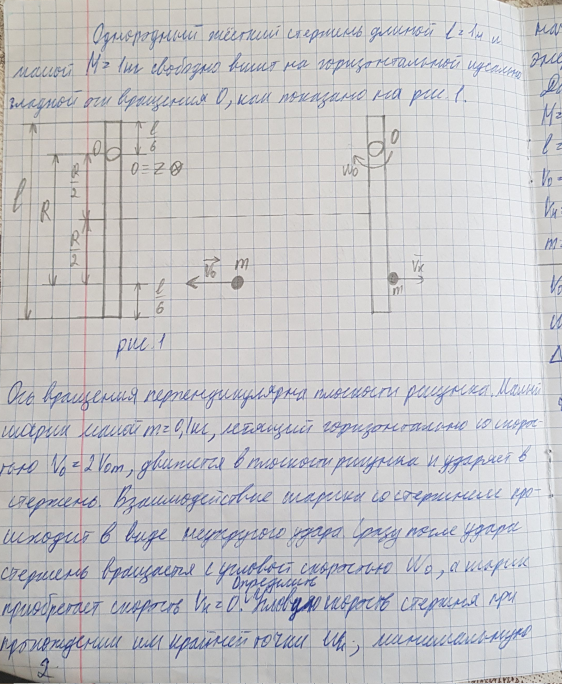 Однородный жёсткий стержень длиной l = 1м и
массой M = 1кг свободно висит на горизонтальной идеально
гладкой оси вращения O, как показано на рис 1.
l/6
O
O ≡ Z
O
ω₀
R/2
l
R
R/2
V₀
m
Vк
l/6
m
рис. 1
Ось вращения перпендикулярна плоскости рисунка. Малый
шарик массой m = 0,1кг, летящий горизонтально со скорос-
тью V₀ = 2V₀m, движется в плоскости рисунка и ударяет в
стержень. Взаимодействие шарика со стержнем про-
исходит в виде неупругого удара. Сразу после удара
стержень вращается с угловой скоростью ω₀, а шарик
Определить
приобретает скорость Vк = 0. Угловую скорость стержня при
прохождении им крайней точки ωк; минимальную
2